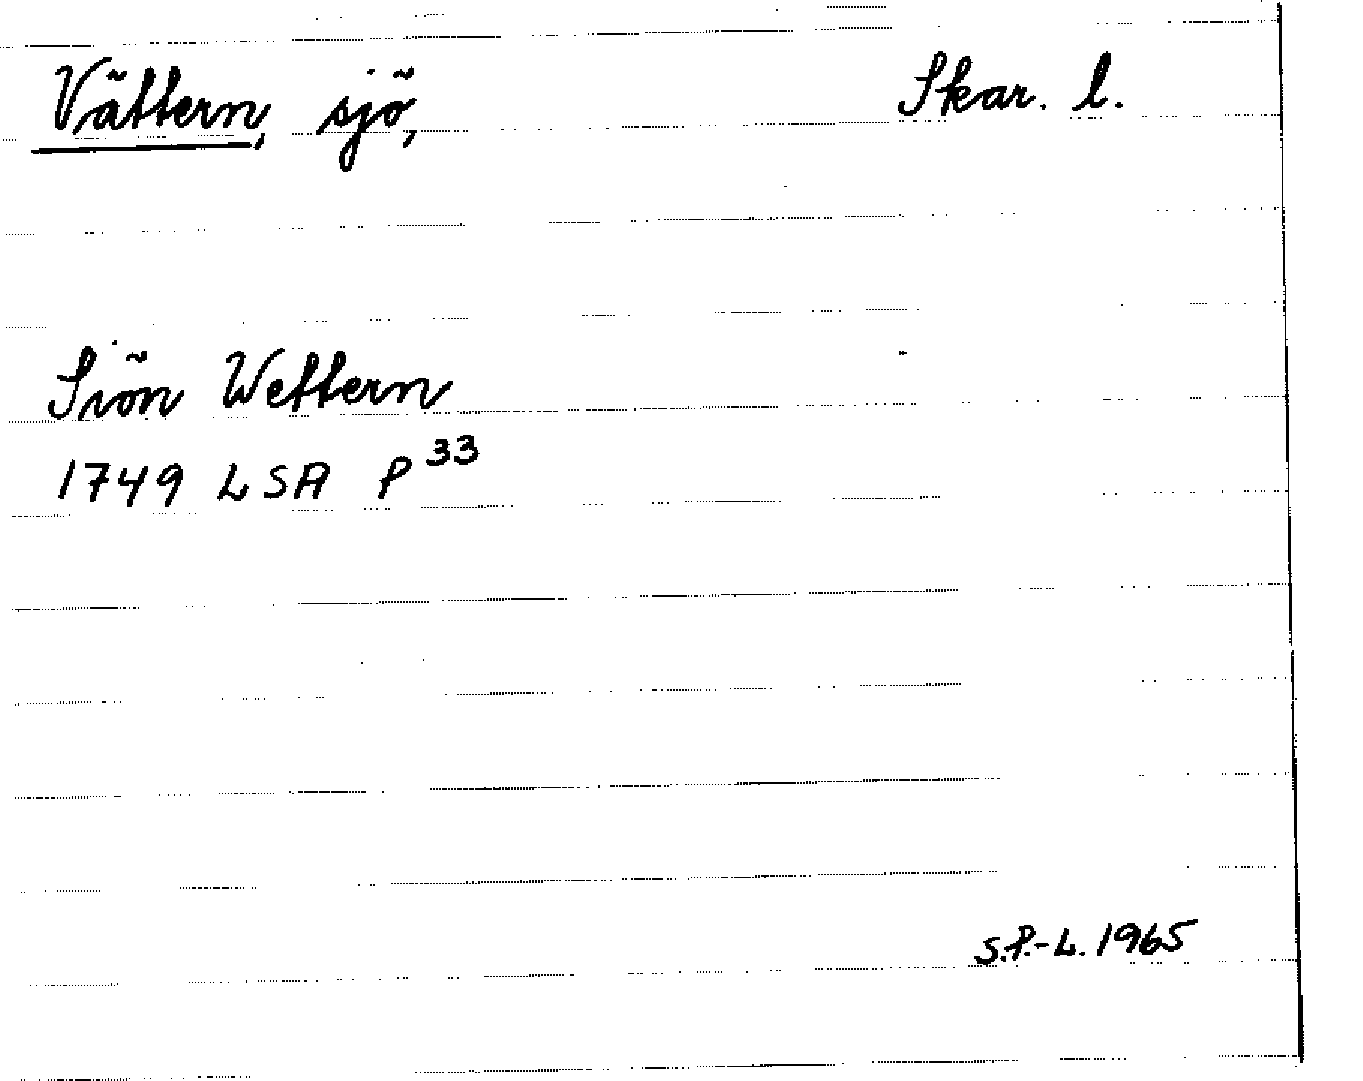 Vättern, sjö, Skar. l.
Siön Wettern
1749 LSA P³³
S.P.-L. 1965